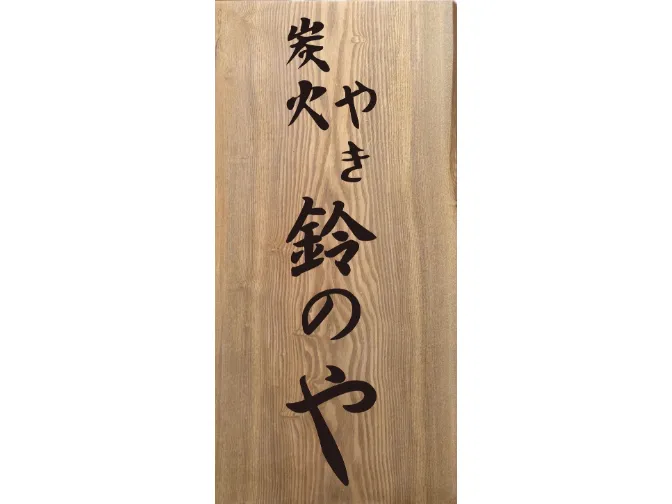 炭火
やき
鈴のや